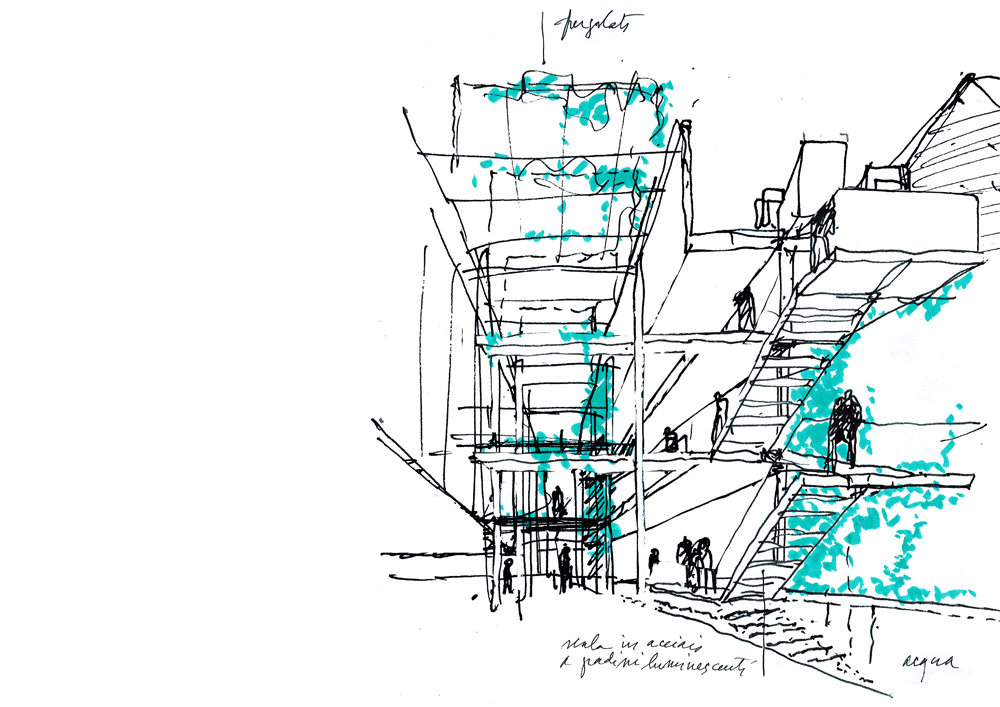 pergolato
scala in acciaio
a gradini luminescenti
acqua